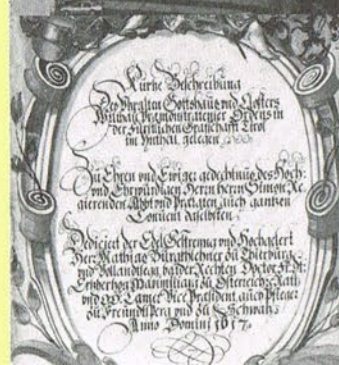 Kurtze Beschreibung
Des Gottshaus und Closters
Wilthau Premonstratenser Ordens in
der Fürstlichen Graffschafft Tirol
im Ynthal gelegen
Zu Ehren und Ewiger gedechtnus des Hoch
und Ehrwürdigen Herrn Herrn Simon Re
gierenden Abbt und Prælaten auch gantzen
Convent daselbsten
Dediciert der Edel Gestreng und Hochgelert
Herr Mathias Burgkhlehner zu Thierburg
und Vollandsegg bayder Rechten Doctor
Ertzhertzog Maximilians zu Osterreich Rath
und Camer Vice Præsident auch Pfleger
zu Freundtsperg und zu Schwatz
Anno Domini 1617